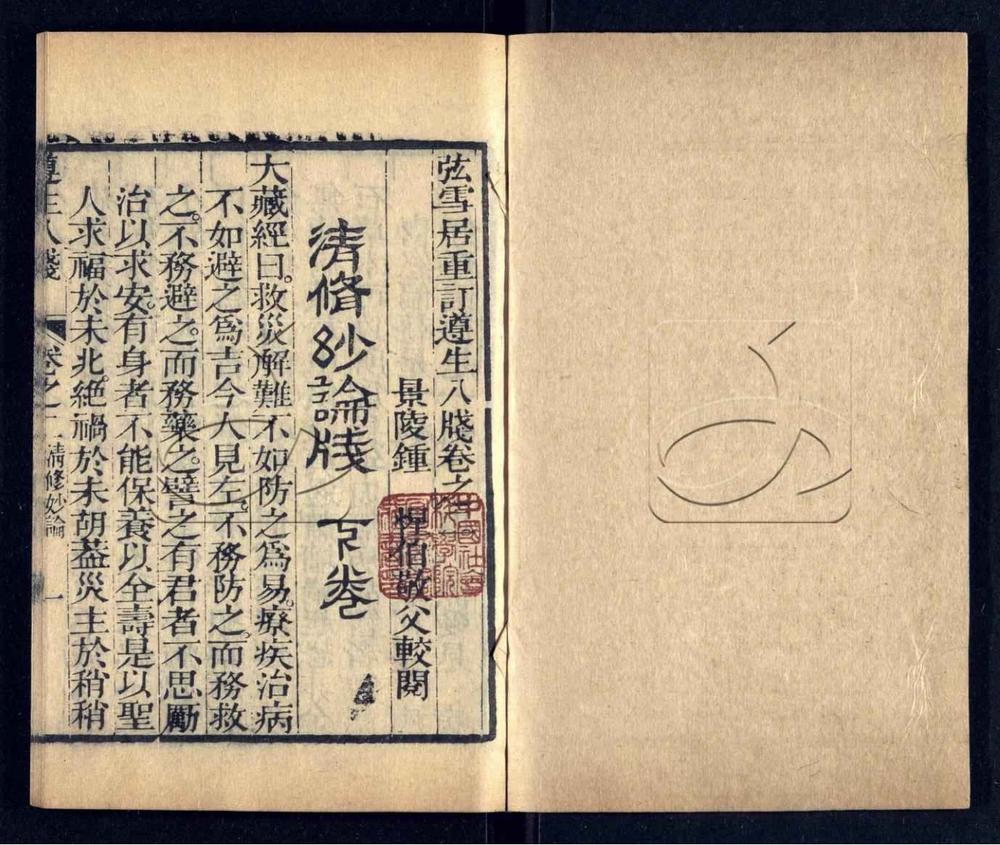 弦雪居重訂遵生八牋卷之
景陵鍾 惺伯敬父較閱
清脩玅論牋 下卷
大藏經曰。救災解難不如防之為易。療疾治病
不如避之爲吉今人見左。不務防之。而務救
之。不務避之。而務藥之。譬之有君者不思勵
治以求安。有身者不能保養以全壽是以聖
人求福於未兆。絕禍於未胡。葢災主於稍稍
遵生八牋 卷之 清修妙論 一
中國社會